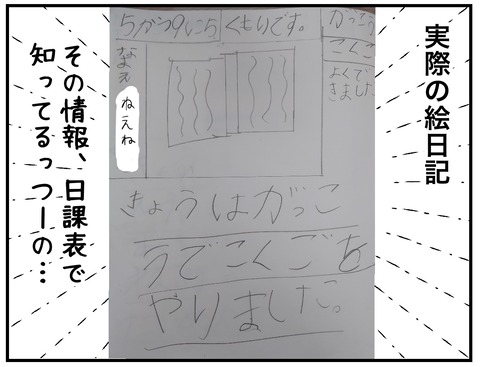 実際の絵日記
5がつ9にち
くもりです。
がっこう
こくご
よくで
きました
なまえ
ねえね
きょうはがっこ
うでこくごを
やりました。
その情報、日課表で
知ってるっつーの…